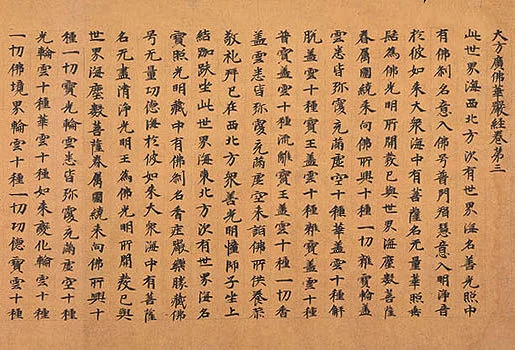 大方廣佛華嚴經卷第三
此世界海西北方次有世界海名善光照中
有佛剎名意入佛号普門智慧意入明淨音
於彼如来大衆海中有菩薩名无量華照垂
髻為佛光明所開發已與世界海塵數菩薩
眷属圍繞来向佛所興十種一切雜寶輪蓋
雲悉皆弥覆充滿虚空十種華蓋雲十種解
脱蓋雲十種寶王蓋雲十種雜寶蓋雲十種
普寶蓋雲十種流離寶王蓋雲十種一切香
蓋雲悉皆弥覆充滿虚空来詣佛所供養恭
敬礼拜已在西北方衆善光明幢師子坐上
結跏趺坐此世界海東北方次有世界海名
寶照光明藏中有佛剎名香莊嚴樂勝藏佛
号无量功德海於彼如来大衆海中有菩薩
名无盡清淨光明王為佛光明所開發已與
世界海塵數菩薩眷属圍繞来向佛所興十
種一切寶光輪雲悉皆弥覆充滿虚空十種
光輪雲十種華雲十種如来變化輪雲十種
一切佛境界輪雲十種一切功德寶雲十種